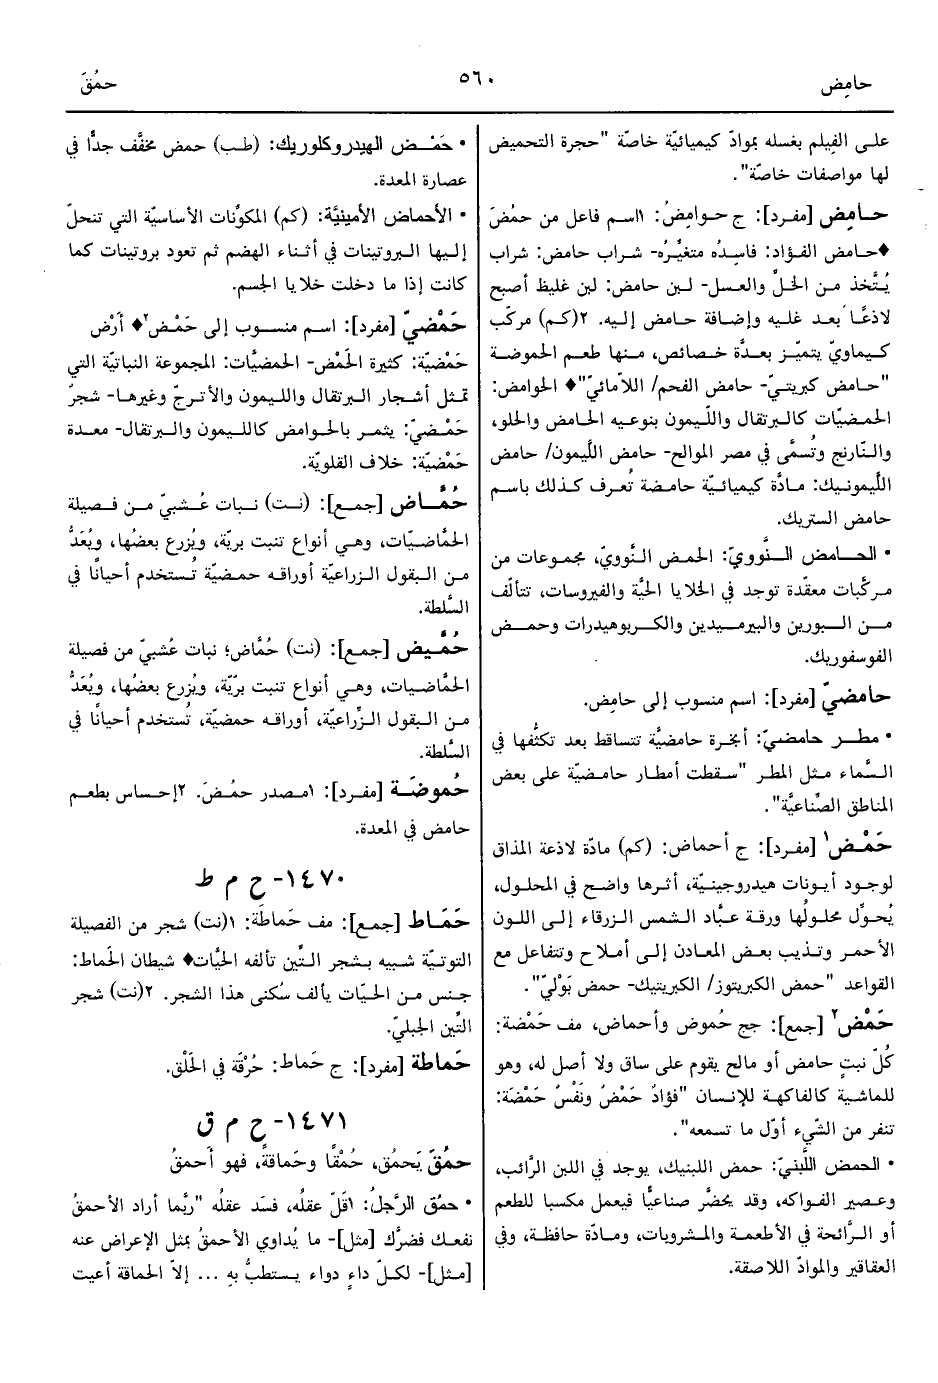 حامِض
٥٦٠
حمُقَ
على الفِيلم بغسله بموادّ كيميائيّة خاصّة "حجرة التحميض
لها مواصفات خاصّة".
حـامِض [مفرد]: ج حوامِضُ: ١اسم فاعل من حمُضَ
♦حـامض الفـؤاد: فاسِدُه متغيُّره- شـراب حامض: شراب
يُتَّخذ مـن الخـلِّ والعسـل- لبـن حامض: لبن غليظ أصبح
لاذعًا بعد غليه وإضافة حامض إليه. ٢(كم) مركّب
كـيماويّ يتميّـز بعـدَّة خـصائص، مـنها طعـم الحموضـة
"حامض كبريتيّ- حامض الفحم/ اللاّمائيّ"♦ الحوامض:
الحمضيّات كالبرتقال واللّيمون بنوعيه الحامض والحلو،
والـنّارنج وتُسـمَّى في مصر الموالح- حامض اللَّيمون/ حامض
اللَّيمونيك: مـادَّة كيميائيّة حامضة تُعرف كـذلك باسم
حامض الستريك.
• الحـامض الـنَّوويّ: الحمض الـنَّوويّ، مجموعات من
مركَّبات معقّدة توجد في الخلايا الحيَّة والفيروسات، تتألّف
مـن الـبورين والبيرمـيدين والكـربوهيدرات وحمـض
الفوسفوريك.
حامضيّ [مفرد]: اسم منسوب إلى حامِض.
• مطـر حامضيّ: أبخرة حامضيَّة تتساقط بعد تكثُّفها في
السَّماء مـثل المطر "سقطت أمطار حامضيّة على بعض
المناطق الصِّناعيَّة".
حَمْـض١ [مفـرد]: ج أحماض: (كم) مادّة لاذعة المذاق
لوجود أيـونات هيدروجينيّة، أثـرها واضح في المحلول،
يُحـوِّل محلولُها ورقـة عـبَّاد الشمس الزرقاء إلى اللون
الأحمر وتذيب بعض المعادن إلى أملاح وتتفاعل مع
القواعد "حمض الكبريتوز/ الكبريتيك- حمض بَوْليّ".
حَمْض٢ [جمع]: جج حُموض وأحماض، مف حَمْضة:
كُلّ نبتٍ حامض أو مالح يقوم على ساق ولا أصل له، وهو
للماشية كالفاكهة للإنسان "فؤادٌ حَمْضٌ ونَفْسٌ حَمْضَة:
تنفر من الشّيء أوّل ما تسمعه".
• الحمض اللَّبنيّ: حمض اللبنيك، يوجد في اللبن الرّائب،
وعـصير الفـواكه، وقد يحضَّر صناعيًّا فيعمل مكسبا للطعم
أو الرّائحة في الأطعمة والمشروبات، ومـادّة حافظة، وفي
العقاقير والموادّ اللاصقة.
• حَمْـض الهيدروكلوريك: (طب) حمض مخفَّف جدًّا في
عصارة المعدة.
• الأحماض الأمينيَّة: (كم) المكوِّنات الأساسيّة التي تنحلّ
إليـها الـبروتينات في أثـناء الهضم ثم تعود بروتينات كما
كانت إذا ما دخلت خلايا الجسم.
حَمْضيّ [مفرد]: اسـم منسـوب إلى حَمْـض٢♦ أرْض
حَمْضيّة: كثيرة الحَمْض- الحمضيَّات: المجموعة النباتيّة التي
تمثل أشجار البرتقال والليمون والأترجّ وغيرها- شجر
حَمْـضيّ: يثمـر بالحوامض كالليمون والبرتقال- معـدة
حَمْضيّة: خلاف القلويّة.
حُمَّـاض [جمـع]: (نـت) نـبات عُـشبيّ مـن فـصيلة
الحمّاضيّات، وهـي أنواع تنبت بريّة، ويُزرع بعضُها، ويُعَدُّ
مـن الـبقول الزراعيّة أوراقـه حمـضيّة تُستخدم أحيانًا في
السَّلطة.
حُمَّيْض [جمع]: (نت) حُمَّاض؛ نبات عُشبيّ من فصيلة
الحمّاضيات، وهـي أنواع تنبت برّيّة، ويُزرع بعضُها، ويُعَدُّ
مـن الـبقول الـزِّراعيّة، أوراقـه حمضيّة، تُستخدم أحيانًا في
السَّلطة.
حُموضَـة [مفـرد]: ١مـصدر حمُـضَ. ٢إحـساس بطعـم
حامض في المعدة.
١٤٧٠- ح م ط
حَمَـاط [جمع]: مف حَماطَة: ١(نت) شجر من الفصيلة
التوتيّة شبيه بشجر الـتِّين تألفه الحيَّات♦ شيطان الحَماط:
جـنس مـن الحـيّات يألف سُكنى هذا الشجر. ٢(نت) شجر
التِّين الجبليّ.
حَماطة [مفرد]: ج حَماط: حُرْقَة في الحَلْق.
١٤٧١- ح م ق
حمُقَ يَحمُق، حُمْقًا وحَماقةً، فهو أحمقُ
• حمُق الرَّجلُ: ١قَلّ عقلُه، فسَد عقلُه "ربَّما أراد الأحمقُ
نفعـك فضرَّك [مثل]- ما يُداوي الأحمقُ بمثل الإعراض عنه
[مـثل]- لكـلّ داءٍ دواء يـستطبُّ بهِ ... إلاّ الحماقة أعيت